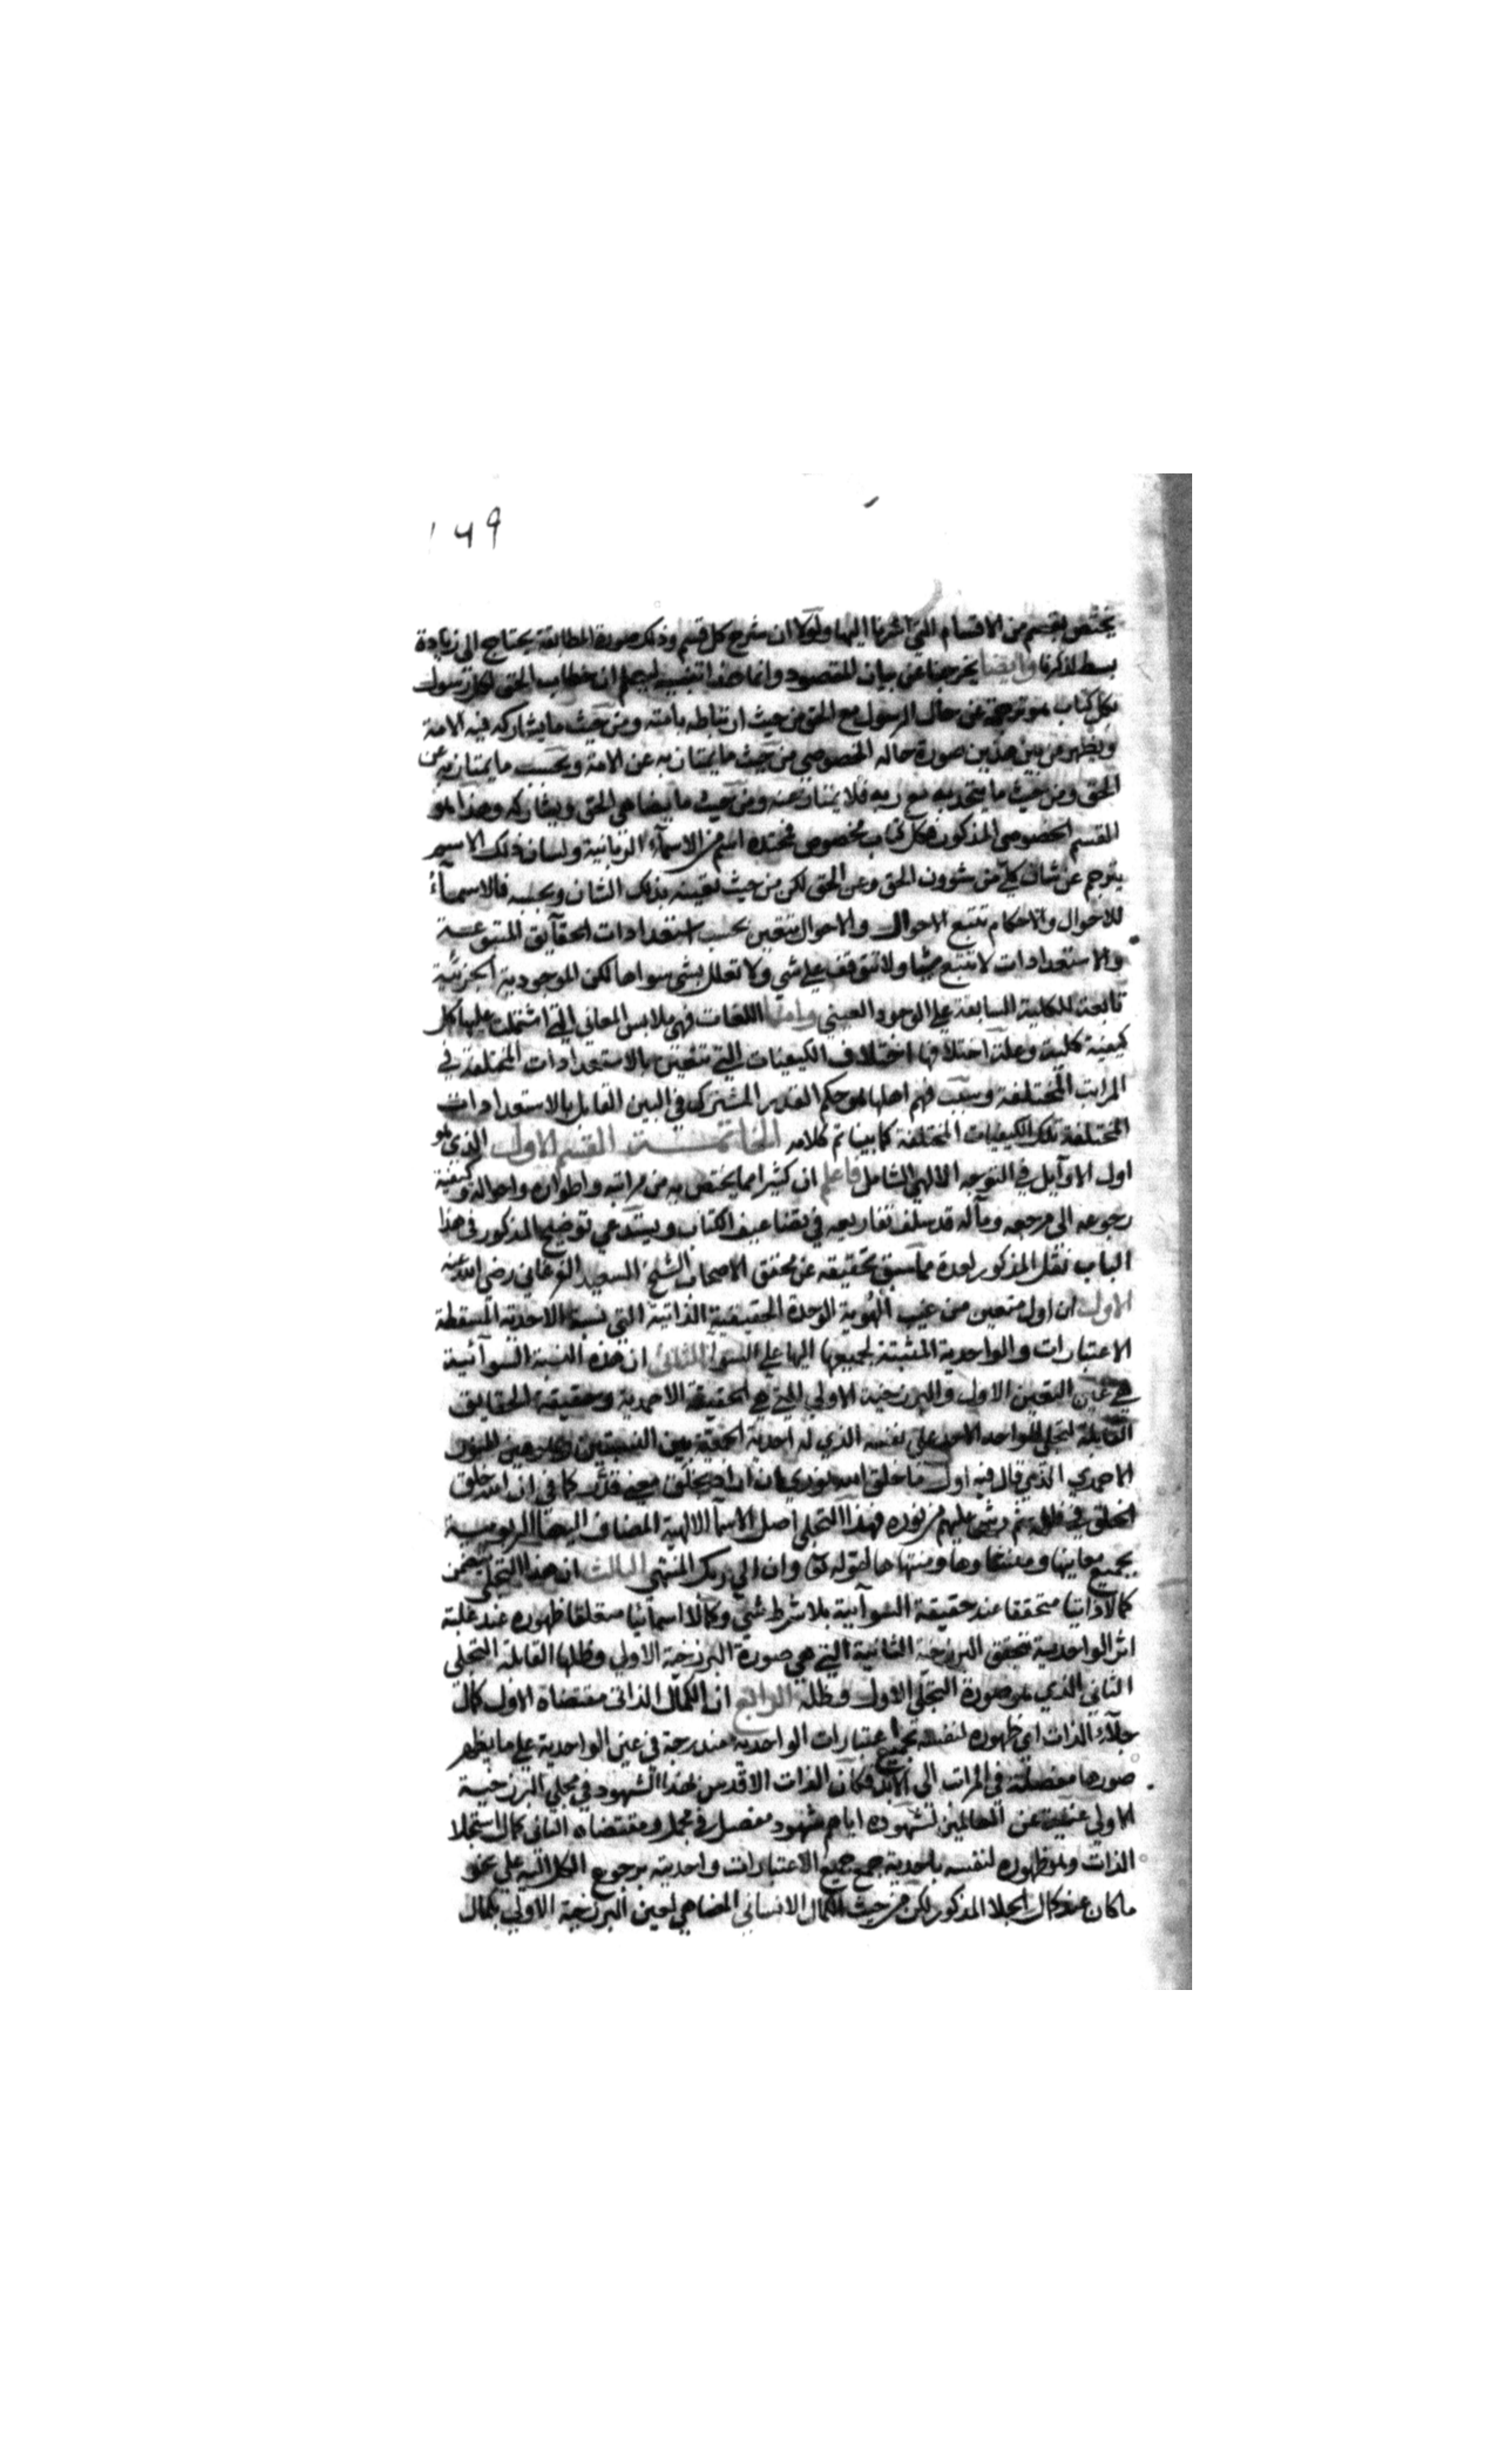 ١٦٩
يختص بقسم من الاقسام التي اشرنا اليها ولولا ان شرح كل قسم وذكر صورة المطابقة يحتاج الى زيادة
بسط لذكرنا وايضا يخرجنا عن بيان المقصود وانما هذا تنبيه ليعلم ان خطاب الحق لكل رسول
بكل كتاب هو ترجمة عن حال الرسول مع الحق من حيث ارتباطه بامته ومن حيث ما يشاركه فيه الامة
ويظهر من بين هذين صورة حاله الخصوصي من حيث ما يمتاز به عن الامة وبحسب ما يمتاز به عن
الحق ومن حيث ما يتحد به مع ربه فلا يمتاز عنه ومن حيث ما يضاهي الحق ويشاركه وهذا هو
القسم الخصوصي المذكور فكل كتاب مخصوص فمحتده اسم من الاسمآء الربانية ولسان ذلك الاسم
يترجم عن شان كلي من شوون الحق وعن الحق لكن من حيث تعينه بذلك الشان وبحسبه فالاسمآء
للاحوال والاحكام تتبع الاحوال والاحوال تتعين بحسب استعدادات الحقآيق المتبوعة
والاستعدادات لا تتبع شيا ولا تتوقف على شي ولا تعلل بشي سواها لكن الموجودية الجزئية
تابعة للكلية السابقة على الوجود العيني واما اللغات فهي ملابس المعاني التي اشتملت عليها كل
كيفية كلية وعلة اختلافها اختلاف الكيفيات التي تتعين بالاستعدادات المختلفة في
المراتب المختلفة وسبب فهم اهلها هو حكم القدر المشترك في البين القابل بالاستعدادات
المختلفة تلك الكيفيات المختلفة كما بينا تم كلامه الخاتمة القسم الاول الذي هو
اول الاوآيل في التوجه الالهي الشامل فاعلم ان كثيرا مما يختص به من مراتبه واطواره واحواله وكيفية
رجوعه الى مرجعه ومآله قد سلف تفاريعه في تضاعيف الكتاب ويستدعي توضيح المذكور في هذا
الباب نقل المذكور لعدة مما سبق تحقيقه عن محقق الاصحاب الشيخ السعيد الفرغاني رضي الله عنه
الاول ان اول متعين من غيب الهوية الوحدة الحقيقية الذاتية التي نسبة الاحدية المسقطة
الاعتبارات والواحدية المثبتة لجميعها اليها على السوآ الثاني ان هذه النسبة السوآئية
هي عين التعين الاول والبرزخية الاولى التي هي الحقيقة الاحمدية وحقيقة الحقايق
القابلة لتجلي الواحد الاحد على نفسه الذي له احدية الجمعية بين النسبتين وهو عين النور
الاحمدي الذي قال فيه اول ما خلق الله نوري فان اراد بخلق معنى قدر كما في ان الله خلق
الخلق في ظلمة ثم رش عليهم من نوره فهذا التجلي اصل الاسمآ الالهية المضاف اليها الربوبية
بجميع معانيها ومنشاوها ومنتهاها لقوله تعالى وان الى ربك المنتهى الثالث ان هذا التجلي يتضمن
كمالا ذاتيا متحققا عند حقيقة السوآئية بلا شرط شي وكمالا اسمائيا متعلقا ظهوره عند غلبة
اثر الواحدية بتحقق البرزخية الثانية التي هي صورة البرزخية الاولى وظلها القابلة التجلي
الثاني الذي هو صورة التجلي الاول وظله الرابع ان الكمال الذاتي مقتضاه الاول كمال
جلآء الذات اي ظهوره لنفسه بجميع اعتبارات الواحدية مندرجة في عين الواحدية على ما يظهر
صورها مفصلة في المراتب الى الابد فكان الذات الاقدس بهذا الشهود في مجلي البرزخية
الاولى غنية عن العالمين لشهوده اياهم شهود مفصل في مجمل ومقتضاه الثاني كمال استجلا
الذات وهو ظهوره لنفسه باحدية جمع جميع الاعتبارات واحديته برجوع الكل اليه على نحو
ما كان عند كمال الجلا المذكور لكن من حيث الكمال الانساني المضاهي لعين البرزخية الاولى بكمال